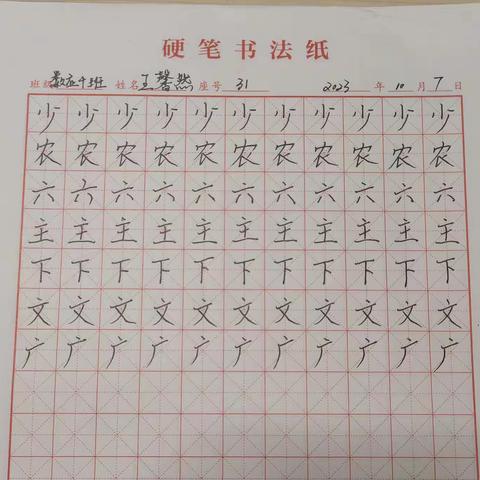 硬笔书法纸
班级 数应 班 姓名 王馨然 座号 31 2023 年 10 月 7 日
少 少 少 少 少 少 少 少 少 少 少
农 农 农 农 农 农 农 农 农 农 农
六 六 六 六 六 六 六 六 六 六 六
主 主 主 主 主 主 主 主 主 主 主
下 下 下 下 下 下 下 下 下 下 下
文 文 文 文 文 文 文 文 文 文 文
广 广 广 广 广 广 广 广 广 广 广